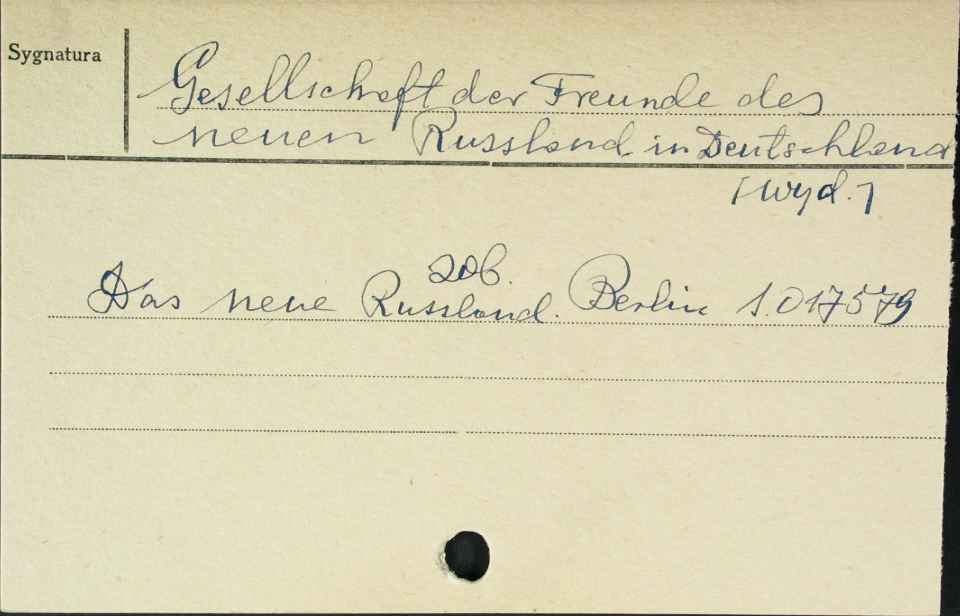 Sygnatura
Gesellschaft der Freunde des
neuen Russland in Deutschland
[wyd.]
zob.
Das neue Russland. Berlin 1.017579